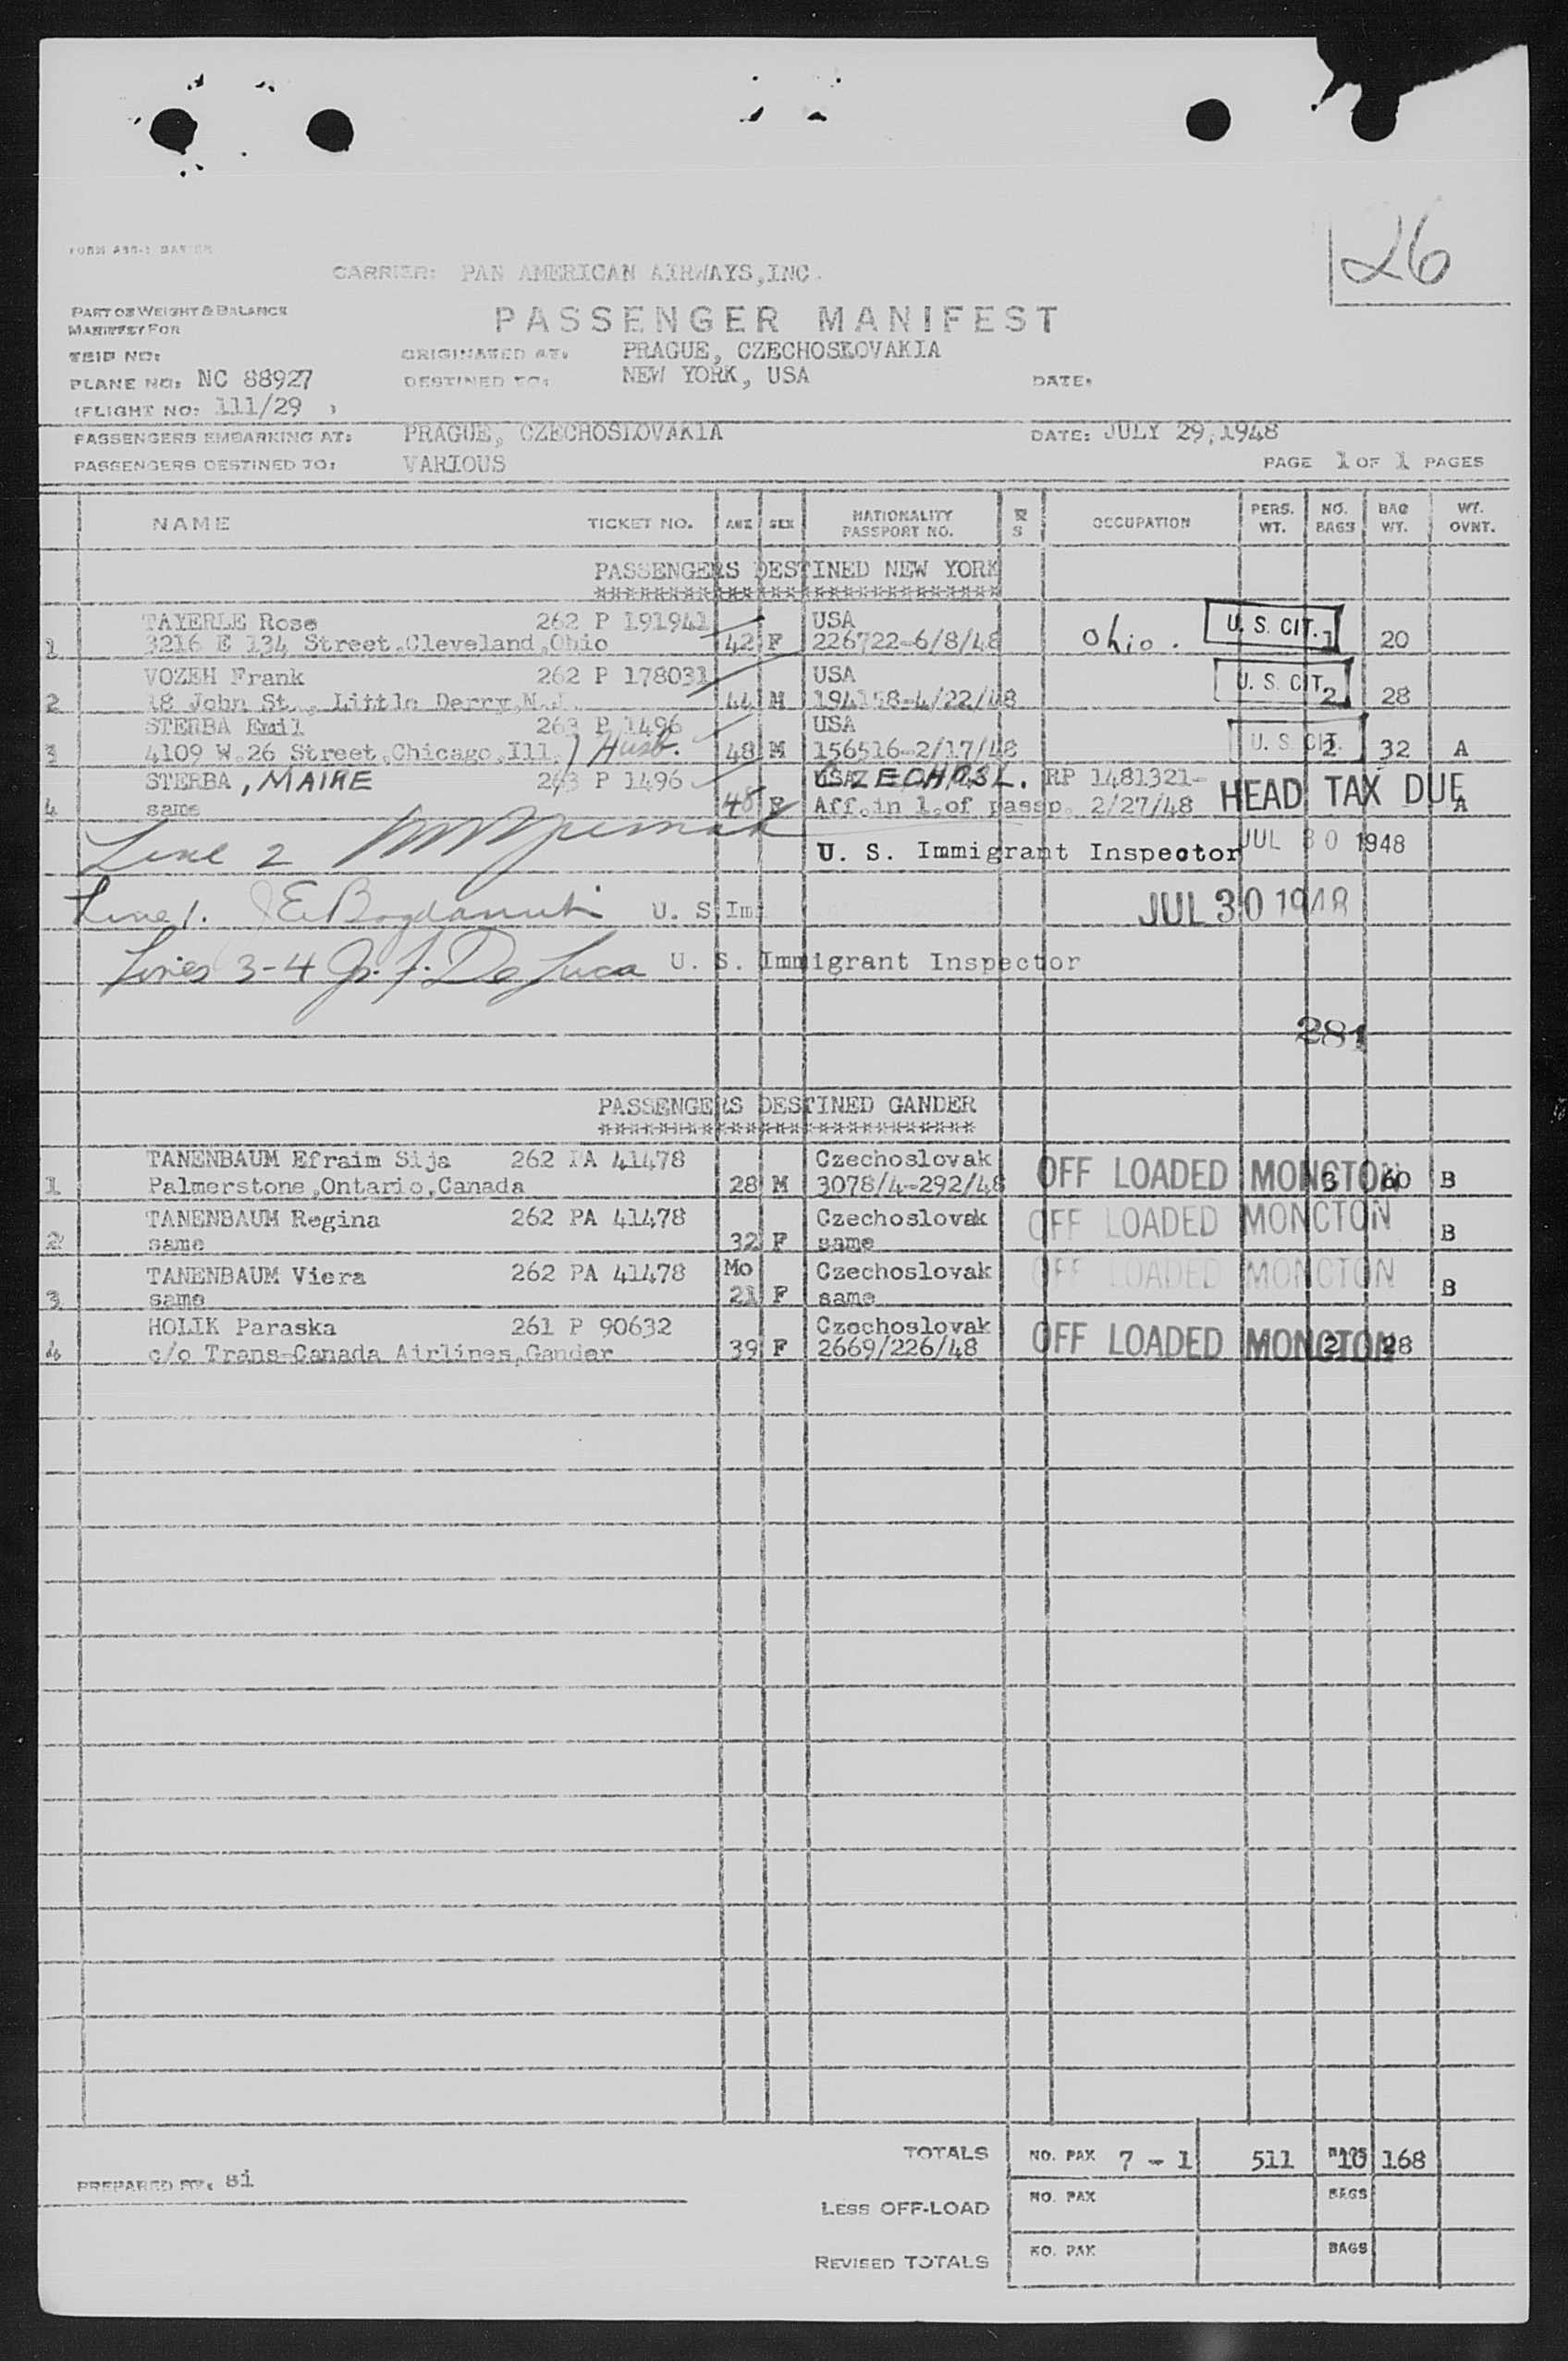 26
CARRIER: PAN AMERICAN AIRWAYS, INC.
PART OF WEIGHT & BALANCE
MANIFEST FOR
PASSENGER MANIFEST
TRIP NO:
ORIGINATED AT: PRAGUE, CZECHOSLOVAKIA
PLANE NO: NC 88927
DESTINED TO: NEW YORK, USA
DATE:
(FLIGHT NO: 111/29 )
PASSENGERS EMBARKING AT: PRAGUE, CZECHOSLOVAKIA DATE: JULY 29,1948
PASSENGERS DESTINED TO: VARIOUS PAGE 1 OF 1 PAGES
NAME TICKET NO. AGE SEX NATIONALITY PASSPORT NO. R S OCCUPATION PERS. WT. NO. BAGS BAG WT. WT. OVNT.
PASSENGERS DESTINED NEW YORK
TAYERLE Rose 262 P 191941 USA U. S. CIT.
1 3216 E 134 Street,Cleveland,Ohio 42 F 226722-6/8/48 Ohio. 1 20
VOZEH Frank 262 P 178031 USA U. S. CIT.
2 18 John St., Little Derry,N.J. 44 M 194158-4/22/48 2 28
STERBA Emil 263 P 1496 USA U. S. CIT.
3 4109 W.26 Street,Chicago,Ill. Husb. 48 M 156516-2/17/48 2 32 A
STERBA, MAIRE 263 P 1496 USA CZECHOSL. RP 1481321- HEAD TAX DUE
4 same 48 F Aff.in l.of passp. 2/27/48 A
Line 2 U. S. Immigrant Inspector JUL 30 1948
Line 1. U. S. Im JUL 30 1948
Lines 3-4 De Luca U. S. Immigrant Inspector
281
PASSENGERS DESTINED GANDER
TANENBAUM Efraim Sija 262 PA 41478 Czechoslovak OFF LOADED MONCTON
1 Palmerstone,Ontario,Canada 28 M 3078/4-292/48 3 60 B
TANENBAUM Regina 262 PA 41478 Czechoslovak OFF LOADED MONCTON
2 same 32 F same B
TANENBAUM Viera 262 PA 41478 Mo Czechoslovak OFF LOADED MONCTON
3 same 21 F same B
HOLIK Paraska 261 P 90632 Czechoslovak OFF LOADED MONCTON
4 c/o Trans-Canada Airlines,Gander 39 F 2669/226/48 2 28
TOTALS NO. PAX 7 - 1 511 BAGS 10 168
PREPARED BY: si
LESS OFF-LOAD NO. PAX BAGS
REVISED TOTALS NO. PAX BAGS